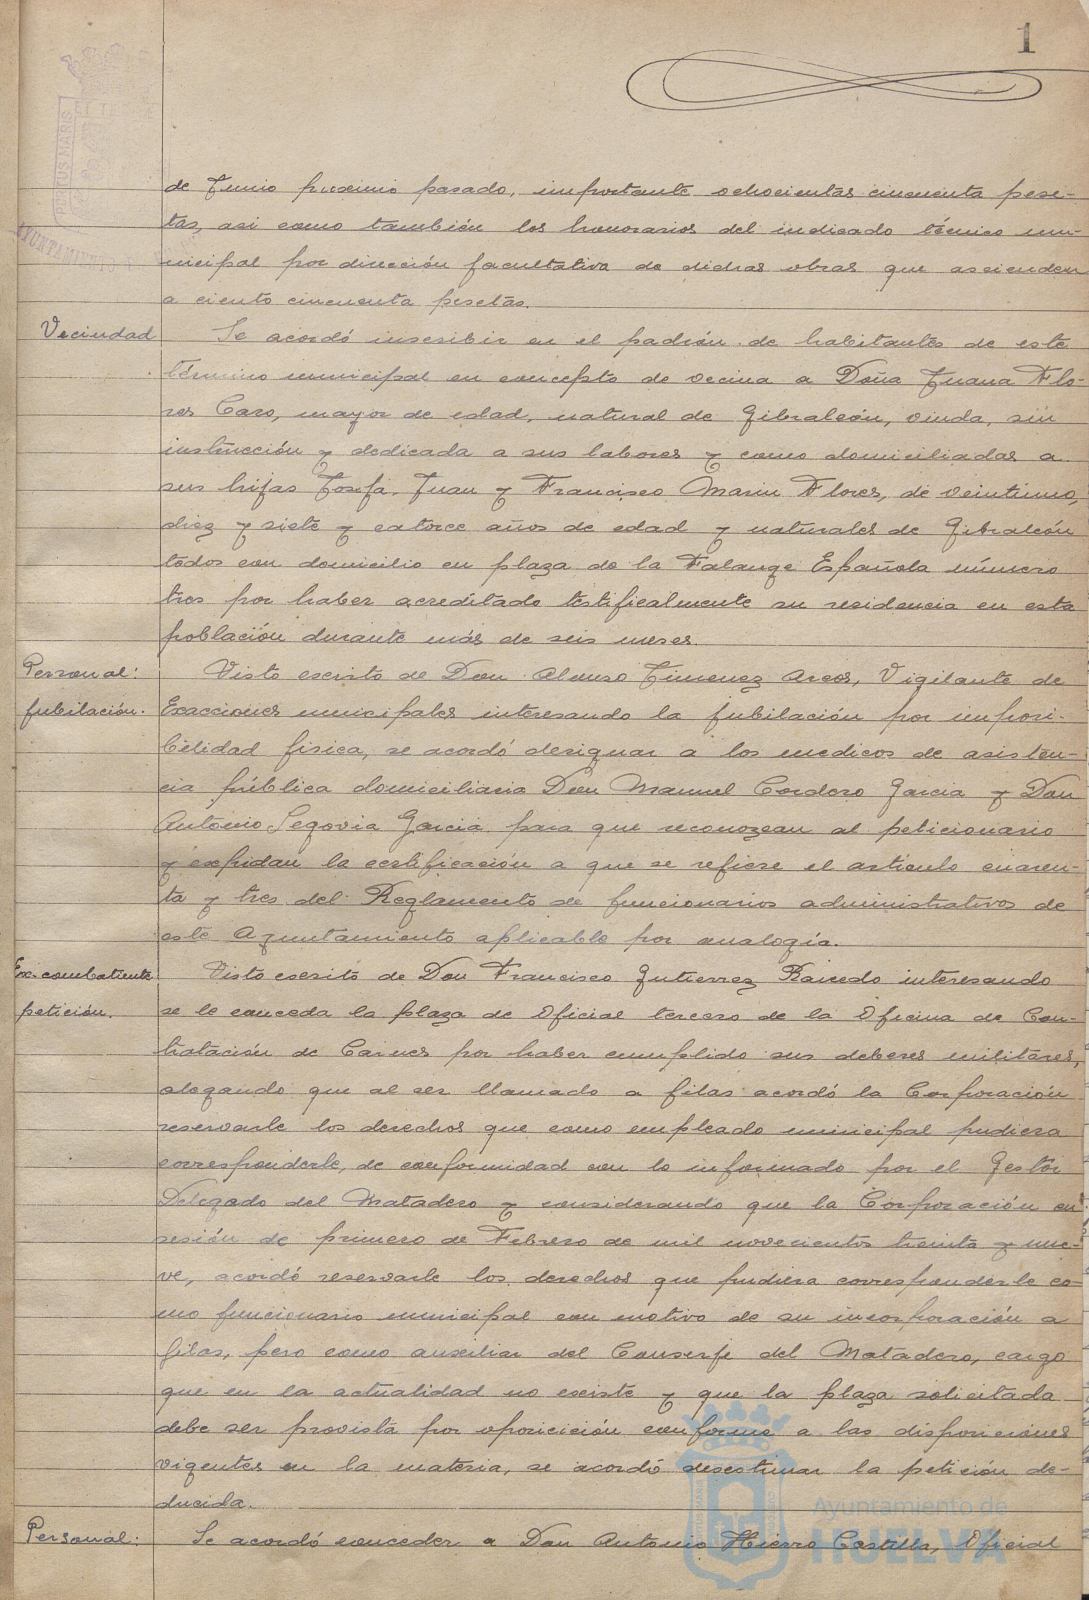 1
de Junio proximo pasado, importante ochocientas cincuenta pese-
tas, asi como también los honorarios del indicado técnico mu-
nicipal por dirección facultativa de dichas obras que ascienden
a ciento cincuenta pesetas.
Vecindad Se acordó inscribir en el padrón de habitantes de este
término municipal en concepto de vecina a Doña Juana Flo-
res Caro, mayor de edad, natural de Gibraleón, viuda, sin
instrucción y dedicada a sus labores y como domiciliadas a
sus hijas Josefa, Juan y Francisco Marin Flores, de veintiuno,
diez y siete y catorce años de edad y naturales de Gibraleón
todos con domicilio en plaza de la Falange Española número
tres por haber acreditado testificalmente su residencia en esta
población durante más de seis meses.
Personal: Visto escrito de Don Alonso Jimenez Arcos, Vigilante de
jubilación. Exacciones municipales interesando la jubilación por imposi-
bilidad fisica, se acordó designar a los medicos de asisten-
cia pública domiciliaria Don Manuel Cordero Garcia y Don
Antonio Segovia Garcia para que reconozcan al peticionario
y expidan la certificación a que se refiere el articulo cuaren-
ta y tres del Reglamento de funcionarios administrativos de
este Ayuntamiento aplicable por analogía.
Ex-combatiente Visto escrito de Don Francisco Gutierrez interesando
petición. se le conceda la plaza de Oficial tercero de la Oficina de Con-
tratación de Carnes por haber cumplido sus deberes militares,
alegando que al ser llamado a filas acordó la Corporación
reservarle los derechos que como empleado municipal pudiera
corresponderle, de conformidad con lo informado por el Gestor
Delegado del Matadero y considerando que la Corporación en
sesión de primero de Febrero de mil novecientos treinta y nue-
ve, acordó reservarle los derechos que pudiera corresponderle co-
mo funcionario municipal con motivo de su incorporación a
filas, pero como auxiliar del Conserje del Matadero, cargo
que en la actualidad no existe y que la plaza solicitada
debe ser provista por oposicición conforme a las disposiciones
vigentes en la materia, se acordó desestimar la petición de-
ducida.
Personal: Se acordó conceder a Don Antonio Hierro Castilla, Oficial
PORTUS MARIS
AYUNTAMIENTO
Ayuntamiento de
HUELVA